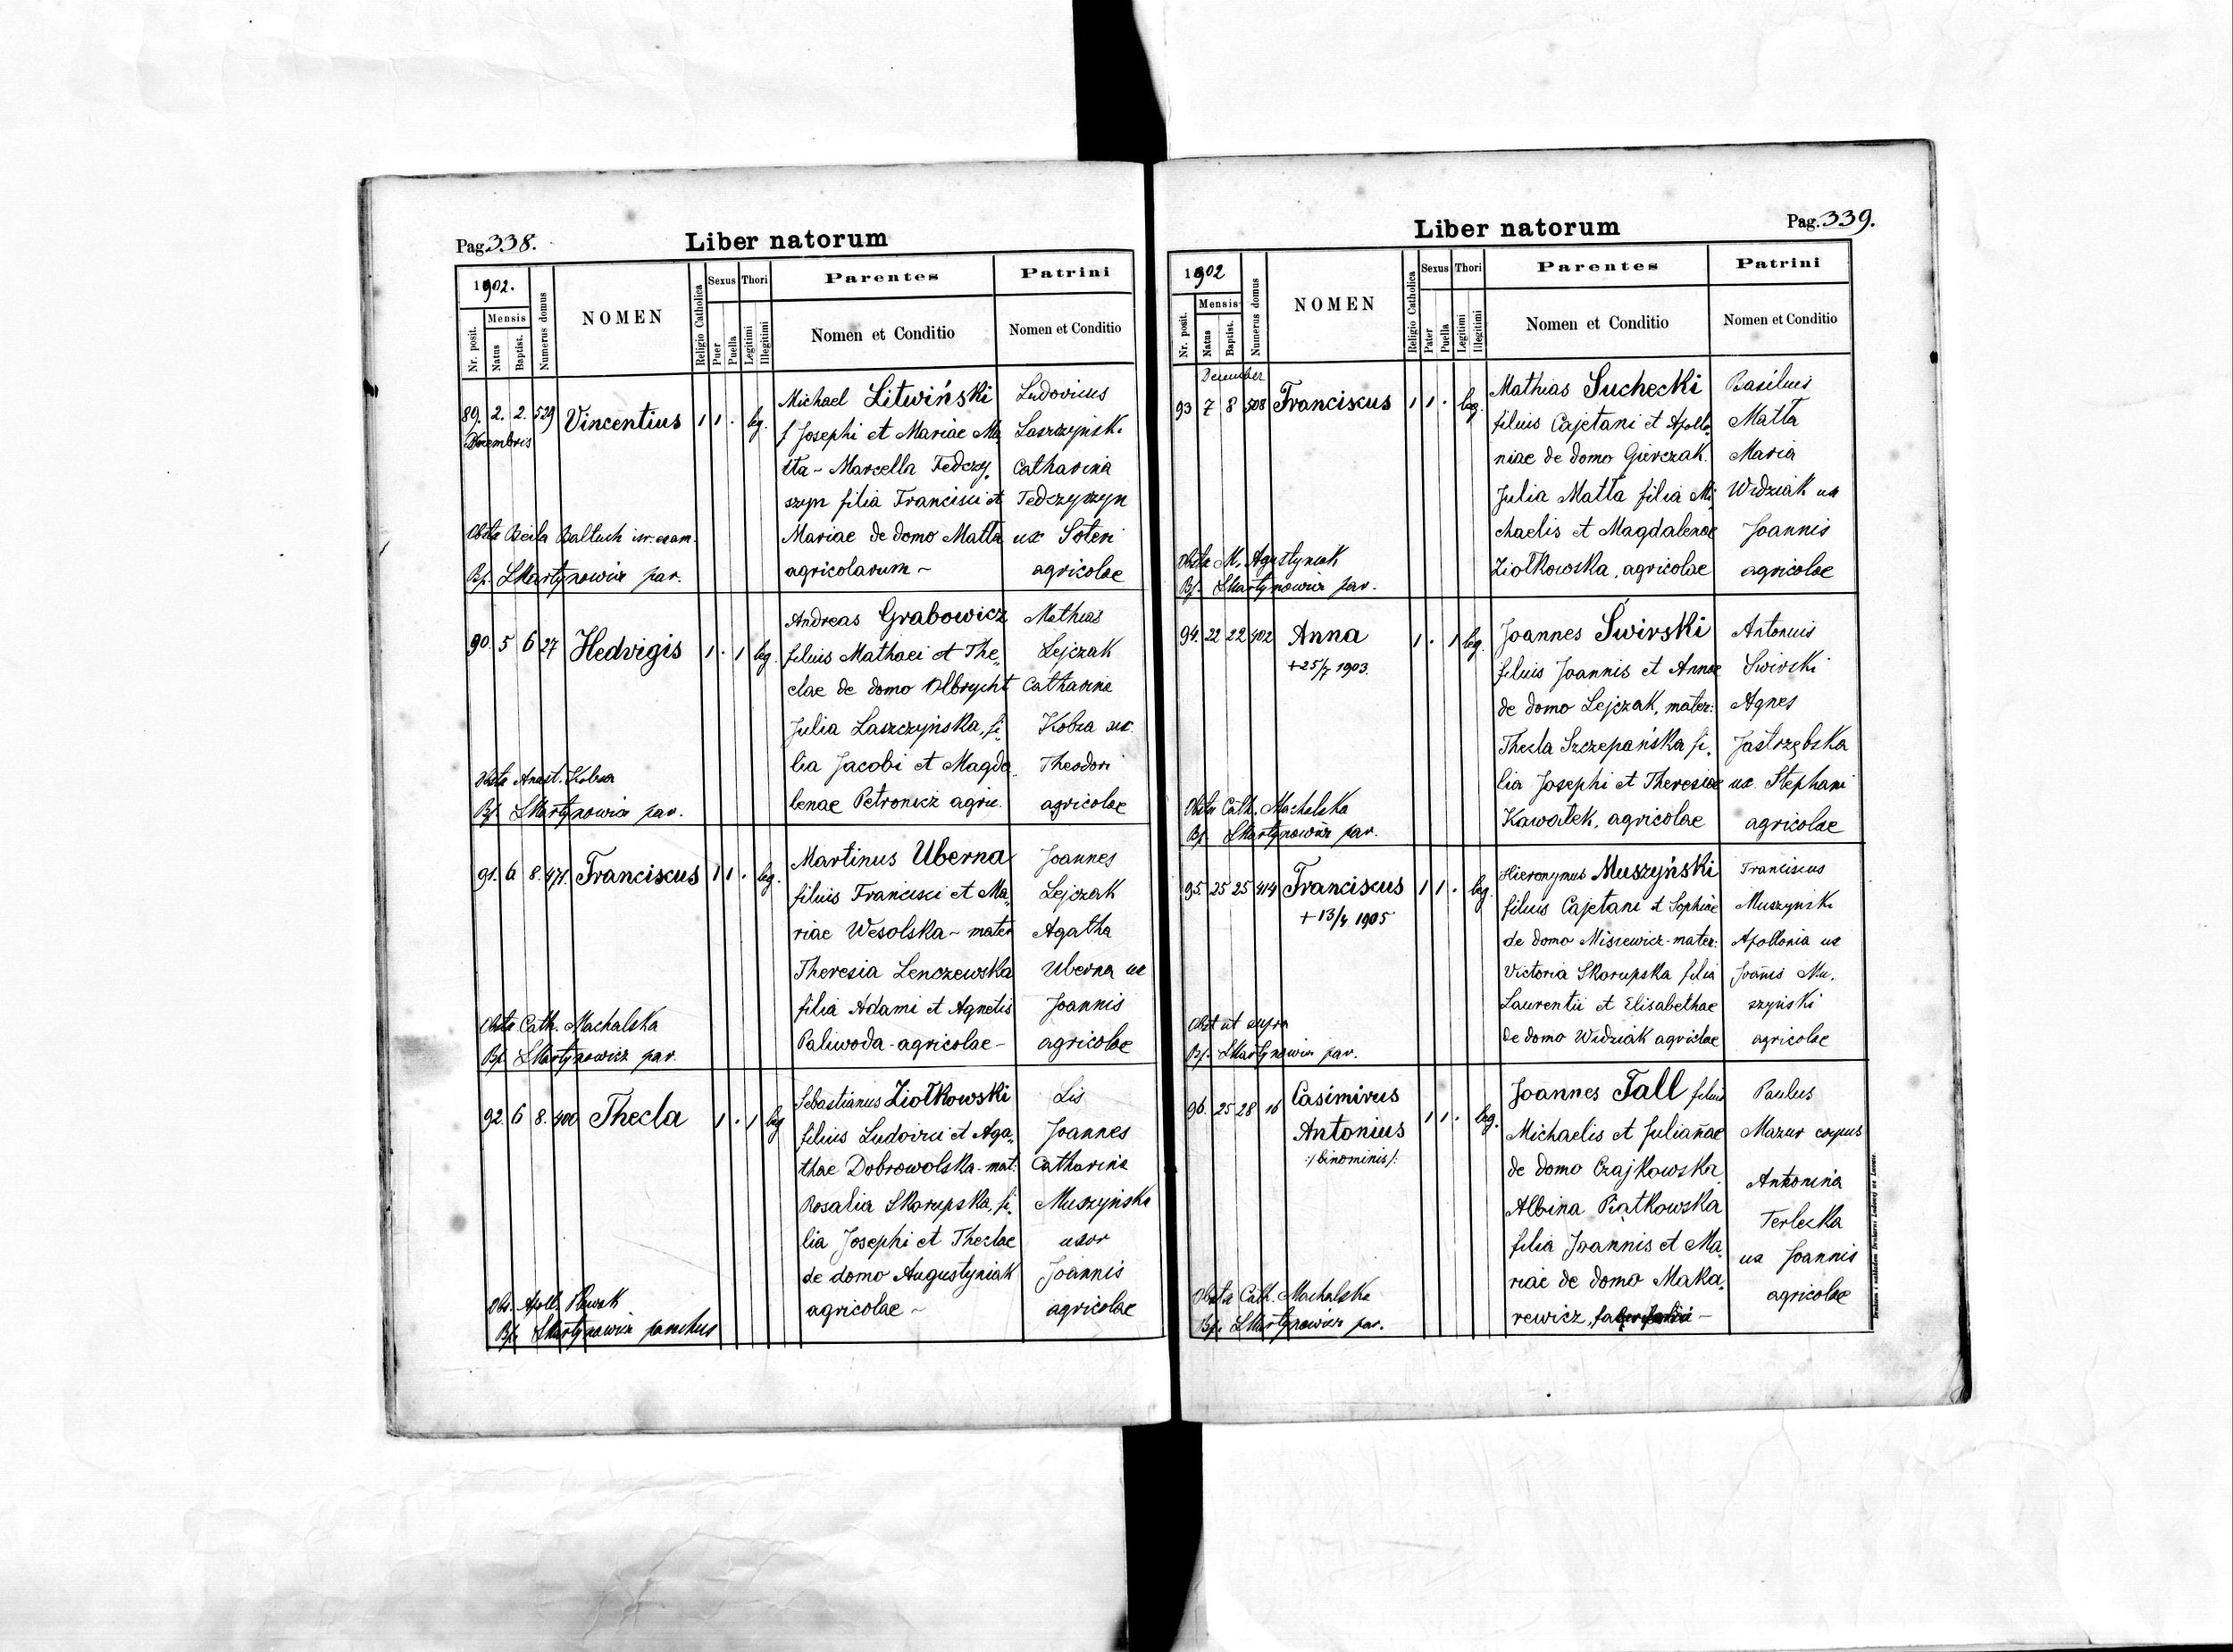 Pag. 338.
Liber natorum
1902.
Nr. posit.
Mensis
Natus
Baptist.
Numerus domus
NOMEN
Religio Catholica
Sexus
Puer
Puella
Thori
Legitimi
Illegitimi
Parentes
Nomen et Conditio
Patrini
Nomen et Conditio
89. 2. 2. 529 Vincentius 1 1 . leg.
Decembris
Michael Litwiński
f Josephi et Mariae Ma,
tta - Marcella Fedczy,
szyn filia Francisci et
Mariae de domo Matta
agricolarum -
Ludovicus
Laszczyński
Catharina
Fedczyszyn
ux
agricolae
Obste Beila Baltuch isr. exam.
Bp. LMartynowicz par.
90. 5 6 27 Hedvigis 1 . 1 leg.
Andreas Grabowicz
filius Mathaei et The,,
clae de domo Olbrycht
Julia Laszczyńska, fi,,
lia Jacobi et Magda
lenae Petronicz agric.
Mathias
Lejczak
Catharina
Kobza ux.
Theodori
agricolae
Obste Anast. Kobza
Bp. LMartynowicz par.
91. 6 8. 471. Franciscus 1 1 . leg.
Martinus Uberna
filius Francisci et Ma,,
riae Wesolska - mater
Theresia Lenczewska
filia Adami et Agnetis
Paliwoda - agricolae -
Joannes
Lejczak
Agatha
Uberna ux
Joannis
agricolae
Obste Cath. Machalska
Bp. LMartynowicz par.
92. 6 8. 400 Thecla 1 . 1 leg
Sebastianus Ziołkowski
filius Ludovici et Aga,,
thae Dobrowolska - mat:
Rosalia Skorupska, fi,
lia Josephi et Theclae
de domo Augustyniak
agricolae -
Lis
Joannes
Catharina
Muszyńska
uxor
Joannis
agricolae
Obs. Apoll.
Bp. LMartynowicz parochus
Pag. 339.
Liber natorum
1902
Nr. posit.
Mensis
Natus
Baptist.
Numerus domus
NOMEN
Religio Catholica
Sexus
Pater
Puella
Thori
Legitimi
Illegitimi
Parentes
Nomen et Conditio
Patrini
Nomen et Conditio
December
93 7 8 508 Franciscus 1 1 . leg.
Mathias Suchecki
filius Cajetani et Apollo,
niae de domo Gierczak.
Julia Matta filia Mi,
chaelis et Magdalenae
Ziołkowska, agricolae
Basilius
Matta
Maria
Widziak ux
Joannis
agricolae
Obste M. Agustyniak
Bp. LMartynowicz par.
94. 22 22 402 Anna 1 . 1 leg.
+ 25/7 1903.
Joannes Świrski
filius Joannis et Annae
de domo Lejczak, mater:
Thecla Szczepańska fi,
lia Josephi et Theresiae
Kawałek, agricolae
Antonius
Świrski
Agnes
Jastrzębska
ux. Stephani
agricolae
Obste Cath. Machalska
Bp. LMartynowicz par.
95. 25 25 414 Franciscus 1 1 . leg
+ 13/4 1905
Hieronymus Muszyński
filius Cajetani et Sophiae
de domo Misiewicz - mater:
Victoria Skorupska filia
Laurentii et Elisabethae
de domo Widziak agriclae
Franciscus
Muszyński
Apollonia ux
Joañis Mu,
szyński
agricolae
Obst ut supra
Bp. LMartynowicz par.
96. 25 28 16 Casimirus 1 1 . leg.
Antonius
:/binominis/:
Joannes Fall filius
Michaelis et Juliañae
de domo Czajkowska,
Albina Piątkowska
filia Joannis et Ma,
riae de domo Maka,
rewicz,
Paulus
Mazur
Antonina
Terlecka
ux Joannis
agricolae
Obste Cath. Machalska
Bp. LMartynowicz par.